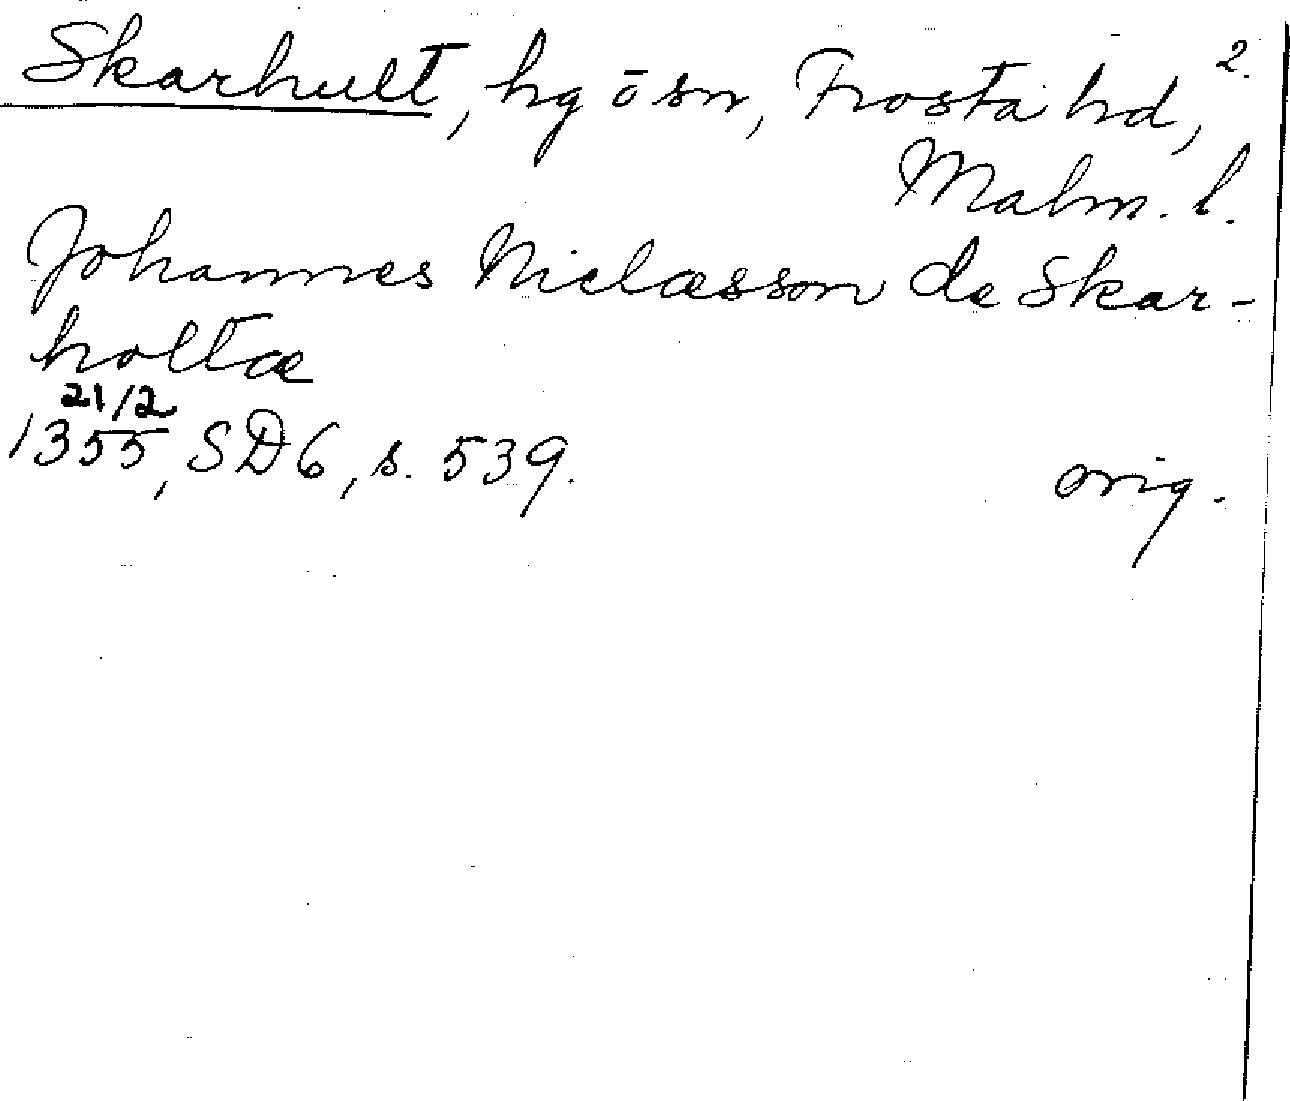 Skarhult, hg ō sn, Frosta hd, 2.
Malm. l.
Johannes Niclæsson de Skar-
holtæ
21/2
1355, SD 6, s. 539. orig.